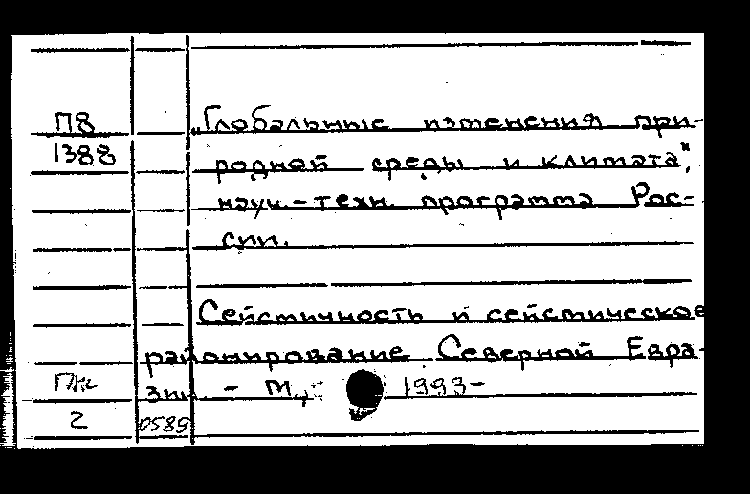 П8
1388
„Глобальные изменения при-
родной среды и климата",
науч.-техн. программа Рос-
сии.
Сейсмичность и сейсмическое
районирование Северной Евра-
зии. - М., 1993-
2
0589